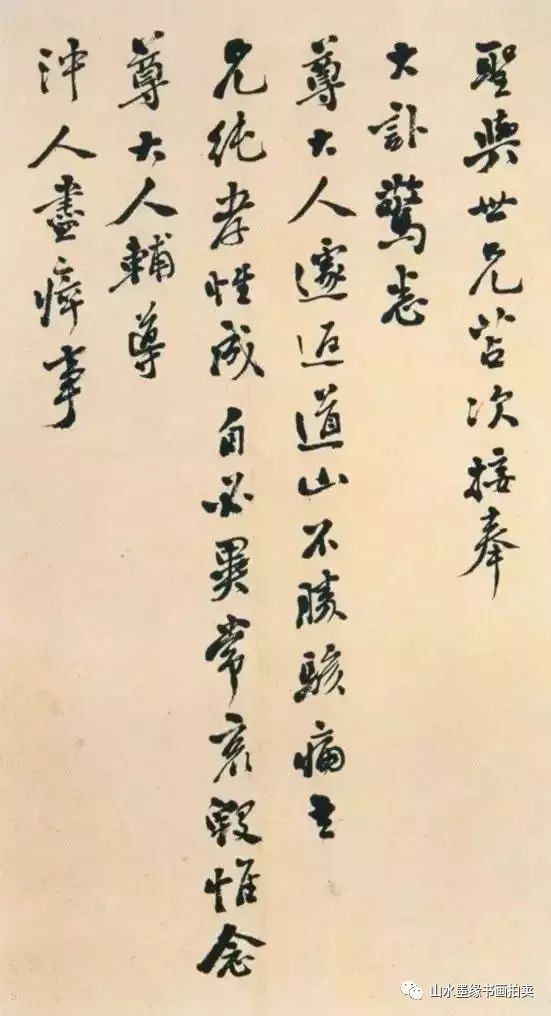 聖與世兄苫次接奉
大訃驚悉
尊大人遽返道山不勝駭痛吾
兄純孝性成自必異常哀毀惟念
尊大人輔導
沖人盡瘁事
山水墨缘书画拍卖